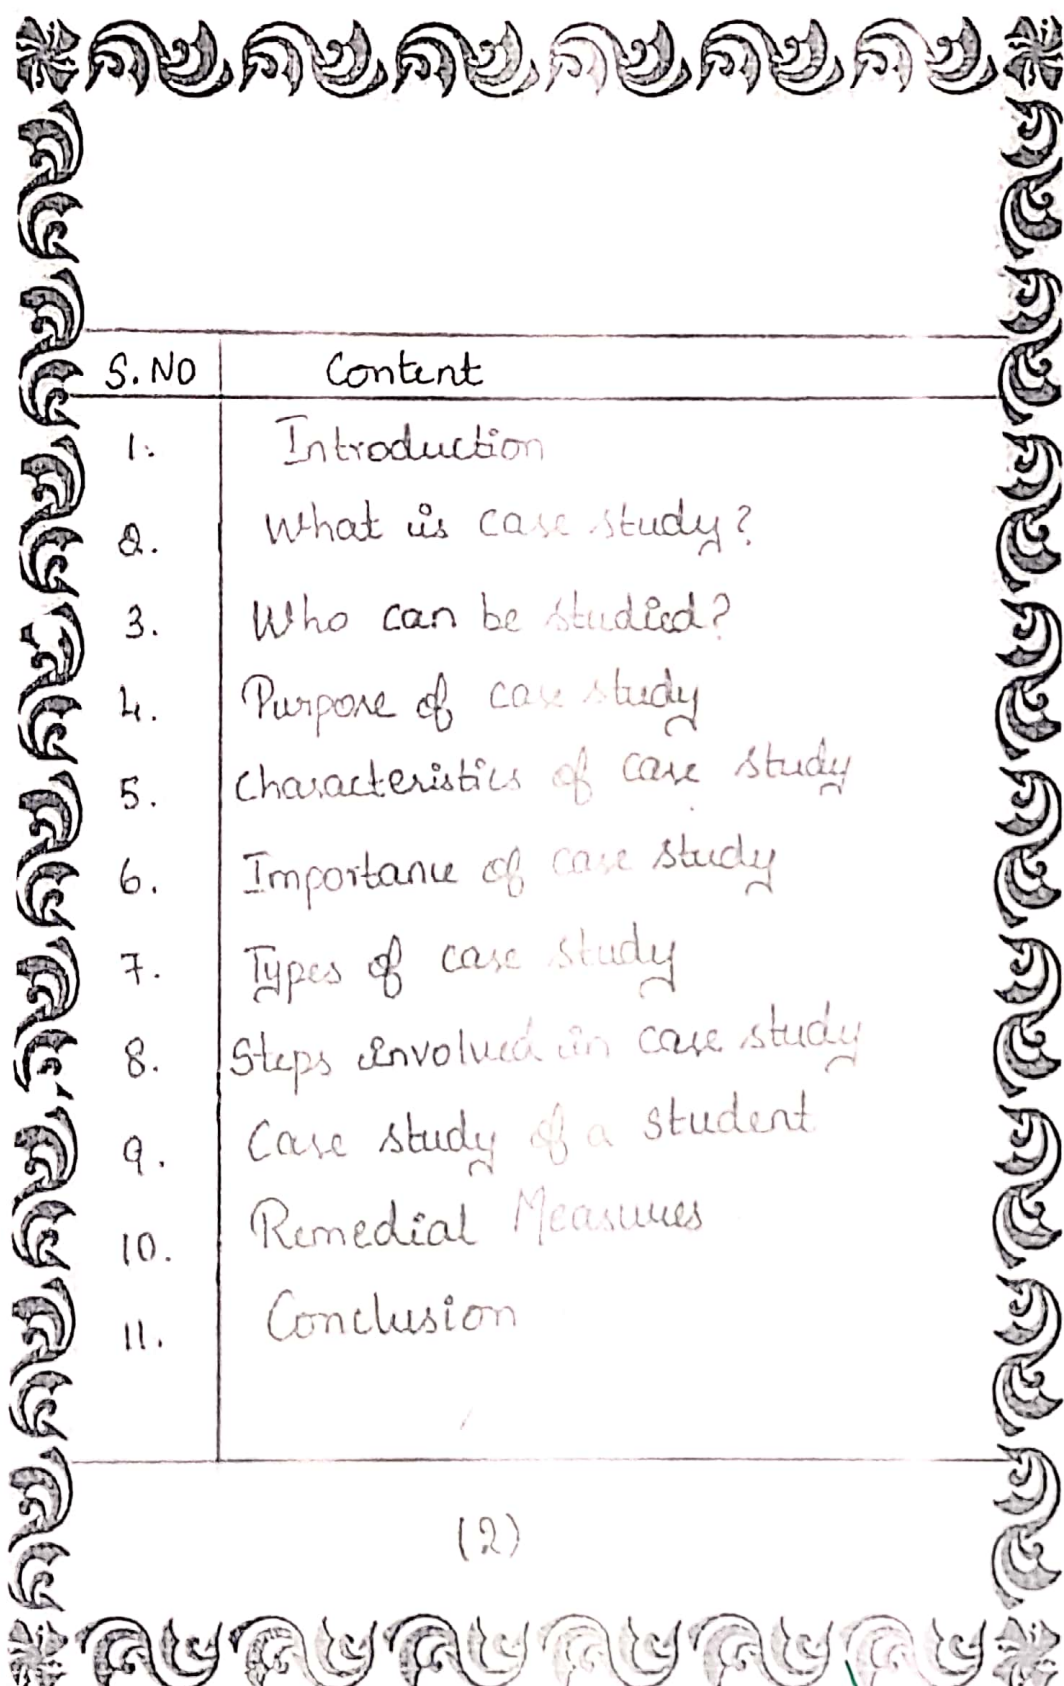 S.NO Content
1. Introduction
2. What is case study?
3. Who can be studied?
4. Purpose of case study
5. Characteristics of case study
6. Importance of case study
7. Types of case study
8. Steps involved in case study
9. Case study of a student
10. Remedial Measures
11. Conclusion
(2)